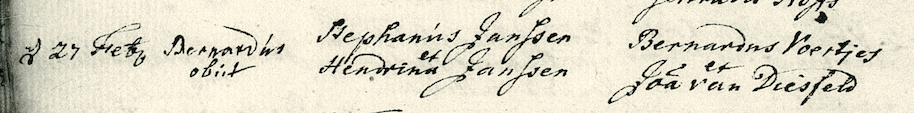 d 27 Feb Bernardus Stephanus Janssen Bernardus Voertjes
obiit et et
Hendrina Janssen Joa van Diesfeld